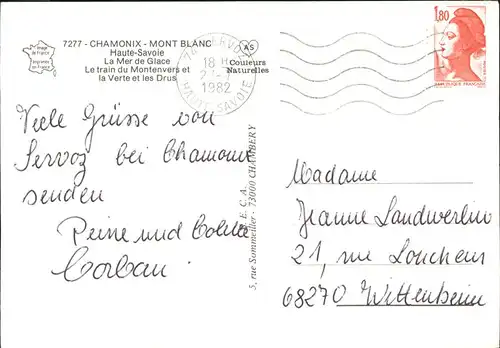 7277 - CHAMONIX - MONT BLANC
Haute-Savoie
La Mer de Glace
Le train du Montenvers et
la Verte et les Drus
Image de France
Imprimée en France
AS
Couleurs
Naturelles
SERVOZ
18 H
1982
HAUTE-SAVOIE
1,80
Viele Grüsse von
Servoz bei Chamonix
senden
und
Corbau
E.C.A.
5, rue Sommeiller - 73000 CHAMBERY
Madame
Jeanne Landwerlin
21, rue Loucheur
68270 Wittenheim